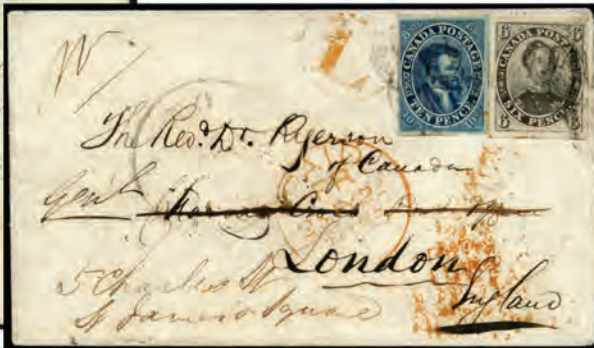 CANADA POSTAGE
TEN PENCE
8
10
CANADA POSTAGE
SIX PENCE
6
The Revd. Dr. Ryerson
of Canada
London
England
5 Charles St
St James's Square